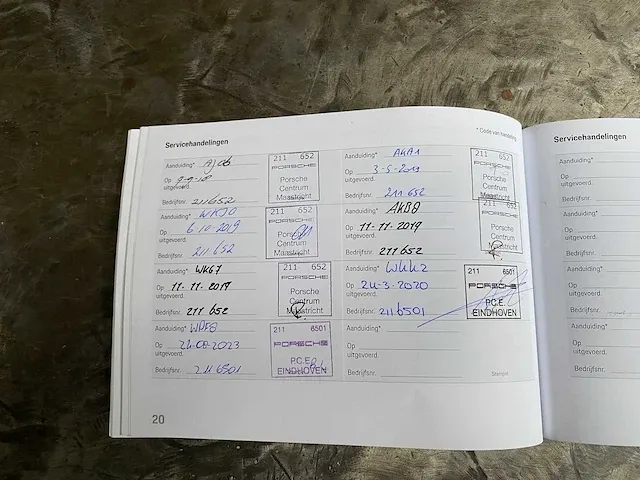 Servicehandelingen
* Code van handeling
Aanduiding*
Op 9-9-18
uitgevoerd.
Bedrijfsnr. 211652
211 652
PORSCHE
Porsche
Centrum
Maastricht
Aanduiding* AKA1
Op 3-5-2019
uitgevoerd.
Bedrijfsnr. 211 652
211 652
PORSCHE
Porsche
Centrum
Maastricht
Aanduiding*
Op 6-10-2019
uitgevoerd.
Bedrijfsnr. 211 652
211 652
PORSCHE
Porsche
Centrum
Maastricht
Aanduiding* AKB8
Op 11-11-2019
uitgevoerd.
Bedrijfsnr. 211 652
211 652
PORSCHE
Porsche
Centrum
Maastricht
Aanduiding* WK67
Op 11-11-2019
uitgevoerd.
Bedrijfsnr. 211 652
211 652
PORSCHE
Porsche
Centrum
Maastricht
Aanduiding*
Op 24-3-2020
uitgevoerd.
Bedrijfsnr. 2116501
211 6501
PORSCHE
P.C.E.
EINDHOVEN
Aanduiding*
Op 24-08-2023
uitgevoerd.
Bedrijfsnr. 2116501
211 6501
PORSCHE
P.C.E.
EINDHOVEN
Aanduiding*
Op
uitgevoerd.
Bedrijfsnr.
Stempel
20
Servicehandelingen
Aanduiding*
Op
uitgevoerd.
Bedrijfsnr.
Aanduiding*
Op
uitgevoerd.
Bedrijfsnr.
Aanduiding*
Op
uitgevoerd.
Bedrijfsnr.
Aanduiding*
Op
uitgevoerd.
Bedrijfsnr.